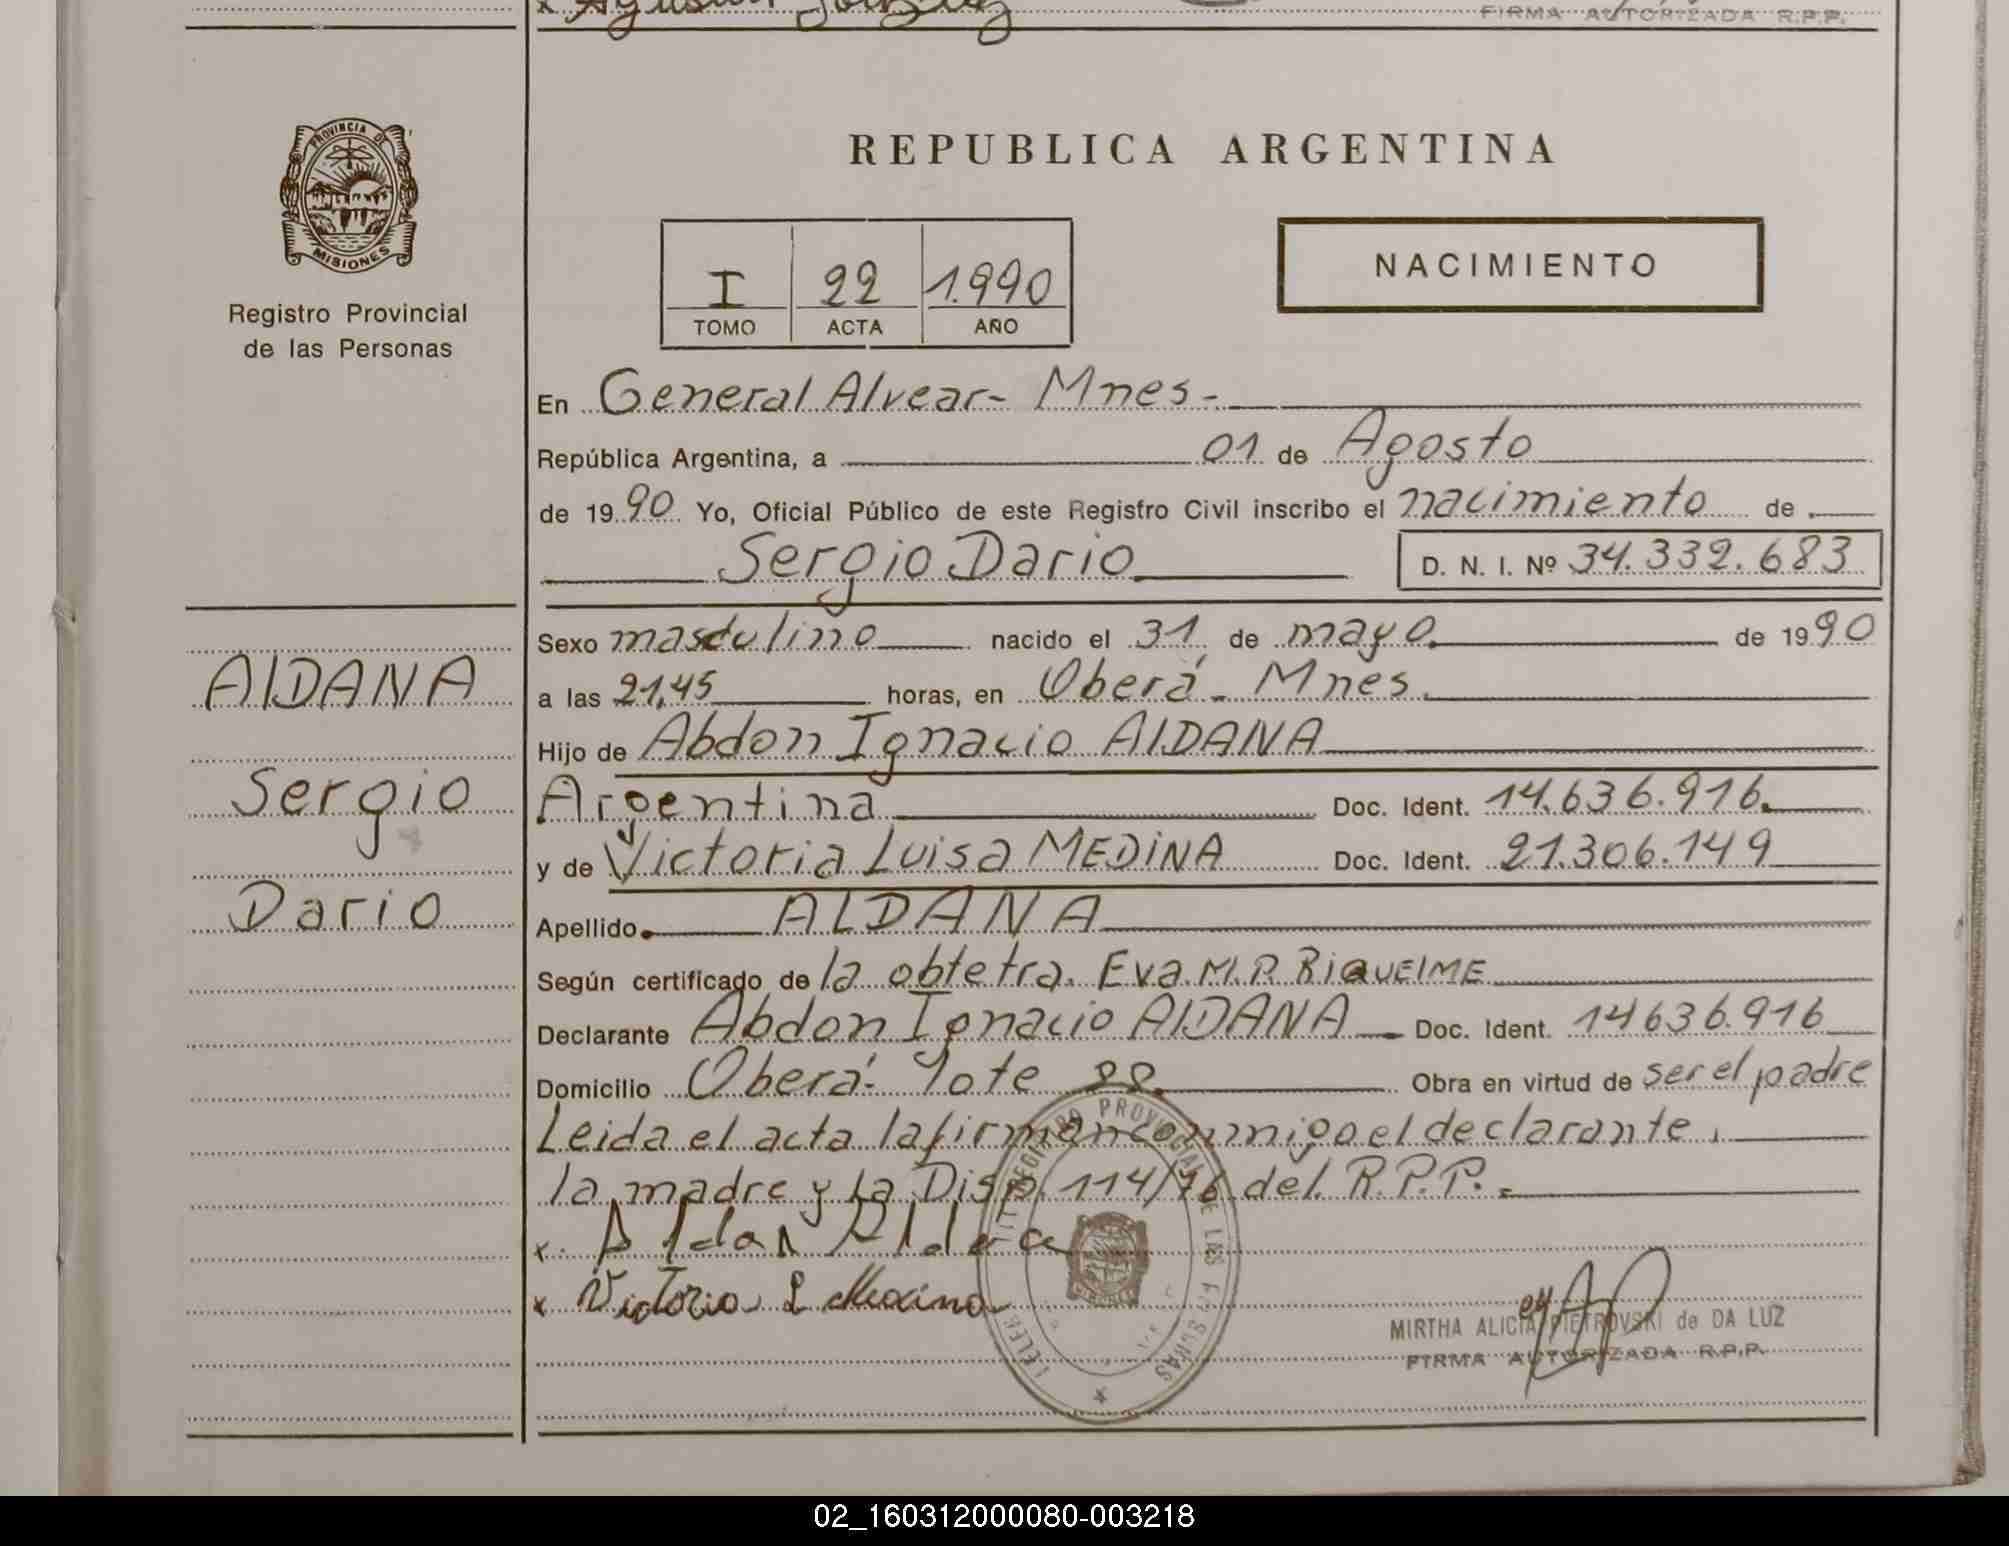 x Agustin
FIRMA AUTORIZADA R.P.P.
PROVINCIA DE
MISIONES
Registro Provincial
de las Personas
REPUBLICA ARGENTINA
I 22 1.990
TOMO ACTA AÑO
NACIMIENTO
En General Alvear - Mnes -
República Argentina, a 01 de Agosto
de 1990 Yo, Oficial Público de este Registro Civil inscribo el nacimiento de
Sergio Dario
D. N. I. Nº 34.332.683
AlDANA
Sergio
Dario
Sexo masculino nacido el 31 de mayo de 1990
a las 21,45 horas, en Oberá - Mnes.
Hijo de Abdon Ignacio AlDANA
Argentina Doc. Ident. 14.636.916.
y de Victoria Luisa MEDiNA Doc. Ident. 21.306.149
Apellido ALDANA
Según certificado de la obtetra. Eva.M.P. RiQUElME
Declarante Abdon Ignacio AlDANA Doc. Ident. 14636.916
Domicilio Oberá - lote 88. Obra en virtud de ser el padre
Leida el acta la firman conmigo el declarante,
la madre y la Disp. 114/76 del R.P.P. -
x.
x Victoria L Medina
REGISTRO PROVINCIAL DE LAS PERSONAS
MIRTHA ALICIA PIETROVSKI de DA LUZ
FIRMA AUTORIZADA R.P.P.
02_160312000080-003218